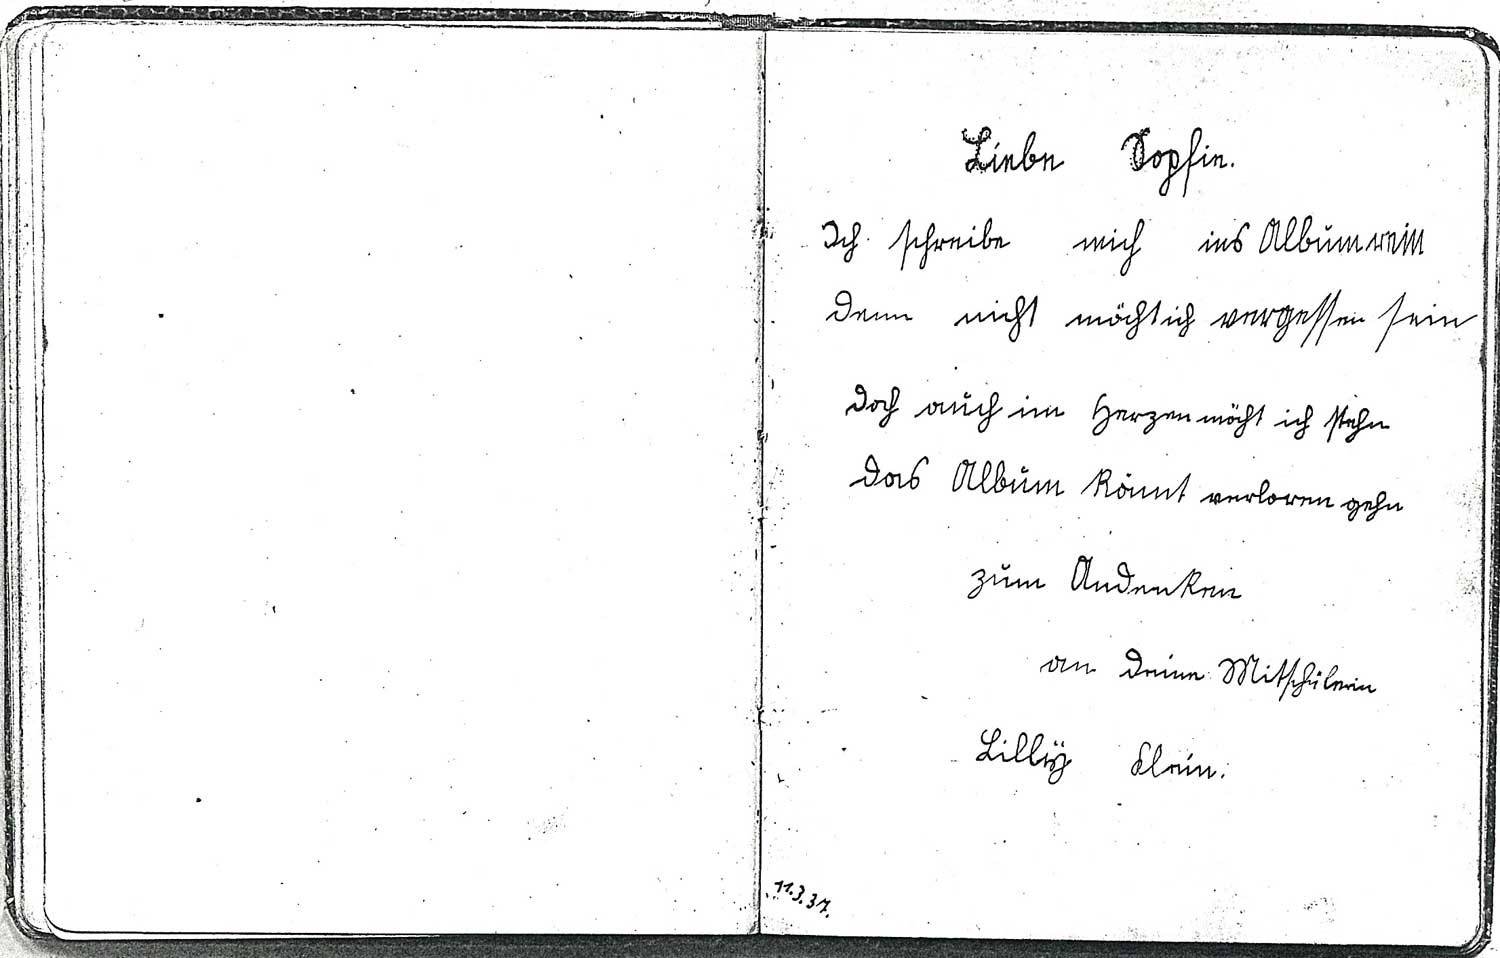 Liebe Sopfie.
Ich schreibe mich ins Album rein
denn nicht möcht ich vergessen sein
doch auch im Herzen möcht ich stehn
das Album könnt verloren gehn
zum Andenken
an deine Mitschülerin
Lilly Klein.
11.3.37.